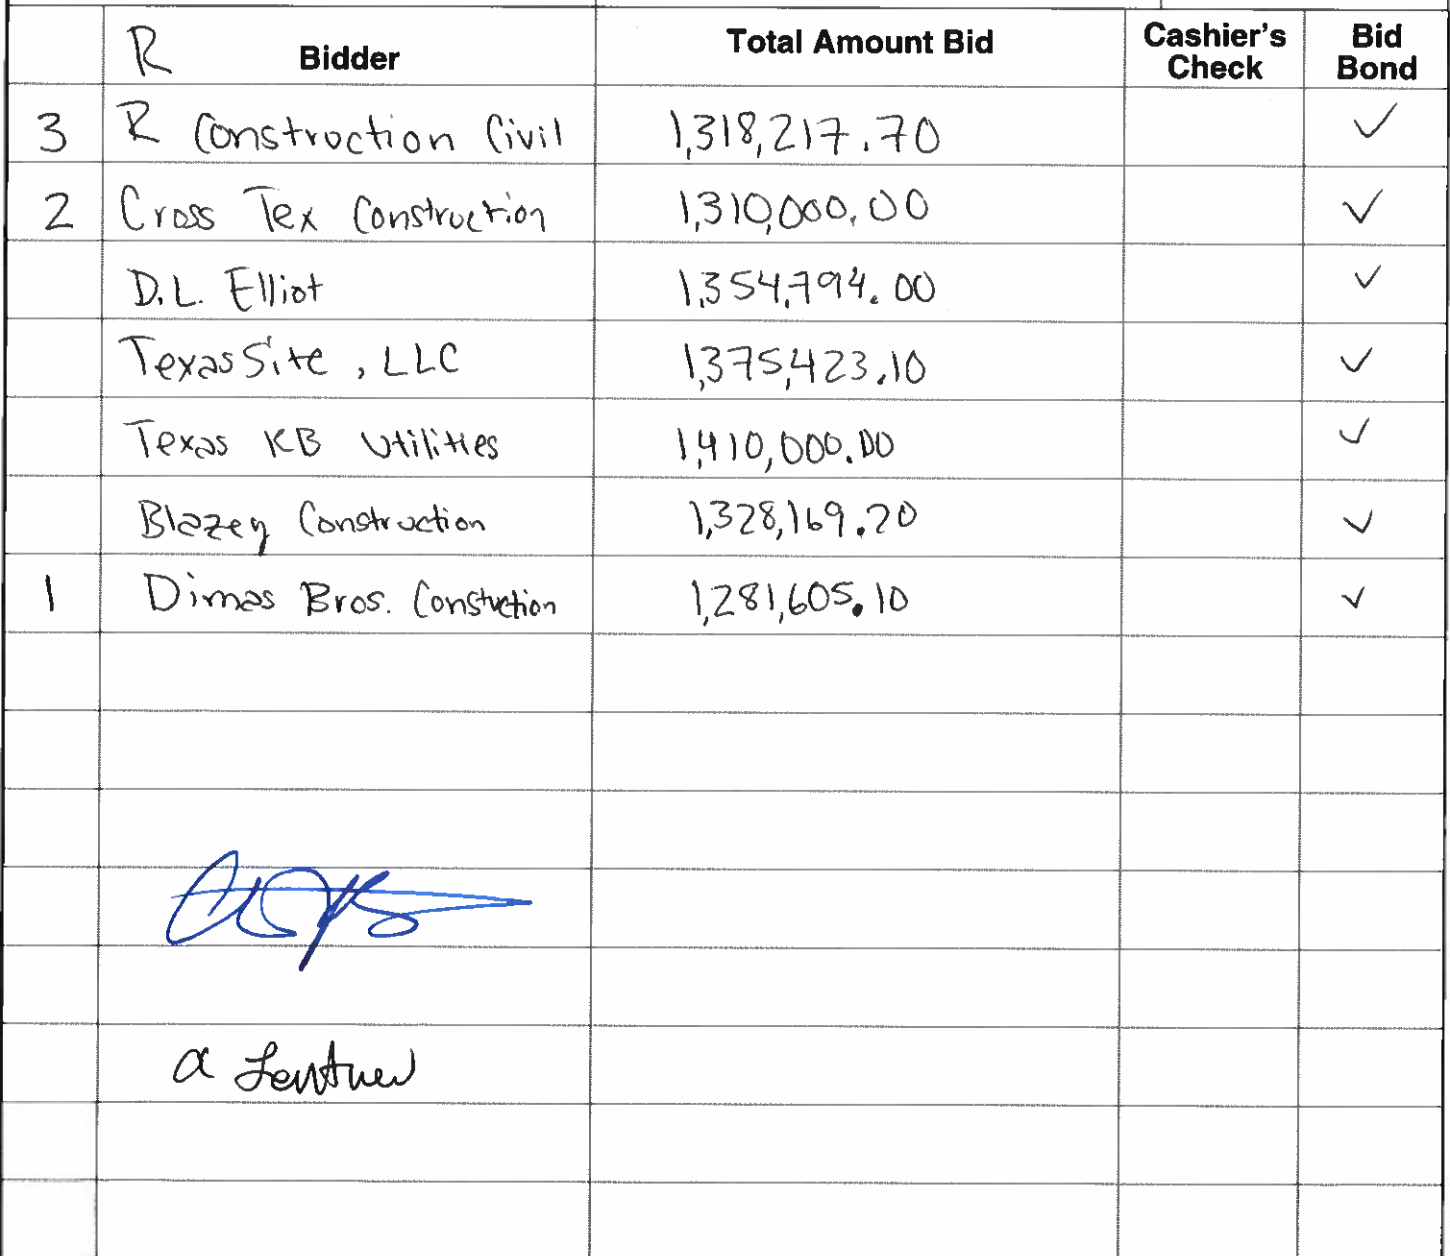 R Bidder Total Amount Bid Cashier's Check Bid Bond
3 R Construction Civil 1,318,217.70 ✓
2 Cross Tex Construction 1,310,000.00 ✓
D.L. Elliot 1,354,794.00 ✓
Texas Site, LLC 1,375,423.10 ✓
Texas KB Utilities 1,410,000.00 ✓
Blazey Construction 1,328,169.20 ✓
1 Dimas Bros. Constuction 1,281,605.10 ✓
a